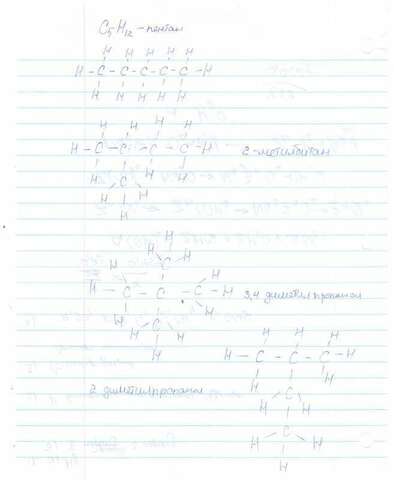 C5H12 - пентан
H H H H H
H - C - C - C - C - C - H
H H H H H
H H H H
H - C - C - C - C - H
H H H
H - C - H
H
2-метилбутан
H
H - C - H
H H
H - C - C - C - H
H H
H - C - H
H
3,4 диметилпропан
H H H
H - C - C - C - H
H H
H - C - H
H - C - H
H
2 диметилпропан